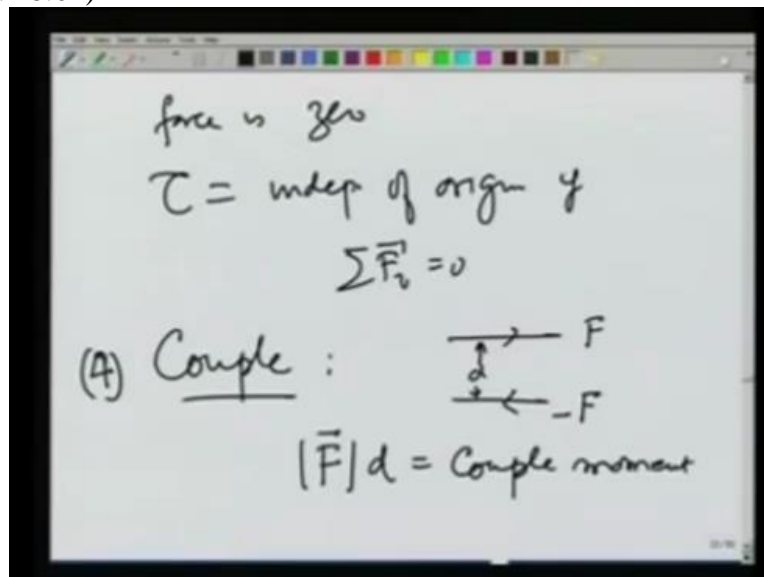 force is zero
τ = indep of origin if
∑F⃗ᵢ = 0
(4) Couple :
F
d
-F
|F⃗| d = Couple moment